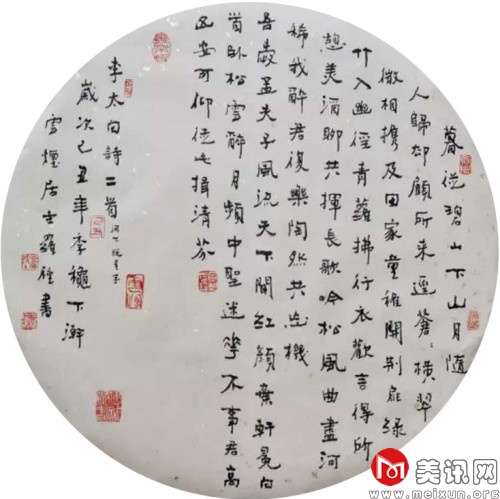 暮從碧山下山月隨
人歸却顧所來逕蒼、橫翠
微相携及田家童稚開荆扉綠
竹入幽徑青蘿拂行衣歡言得所
憩美酒聊共揮長歌吟松風曲盡河
稀我醉君復樂陶然共忘機
吾愛孟夫子風流天下聞紅顏棄軒冕白
首卧松雪醉月頻中聖迷花不事君高
山安可仰徒此揖清芬
李太白詩二首 河下脱星字
歲次己丑年季龝下澣
雪煙居士羅書
美讯网
www.meixun.org